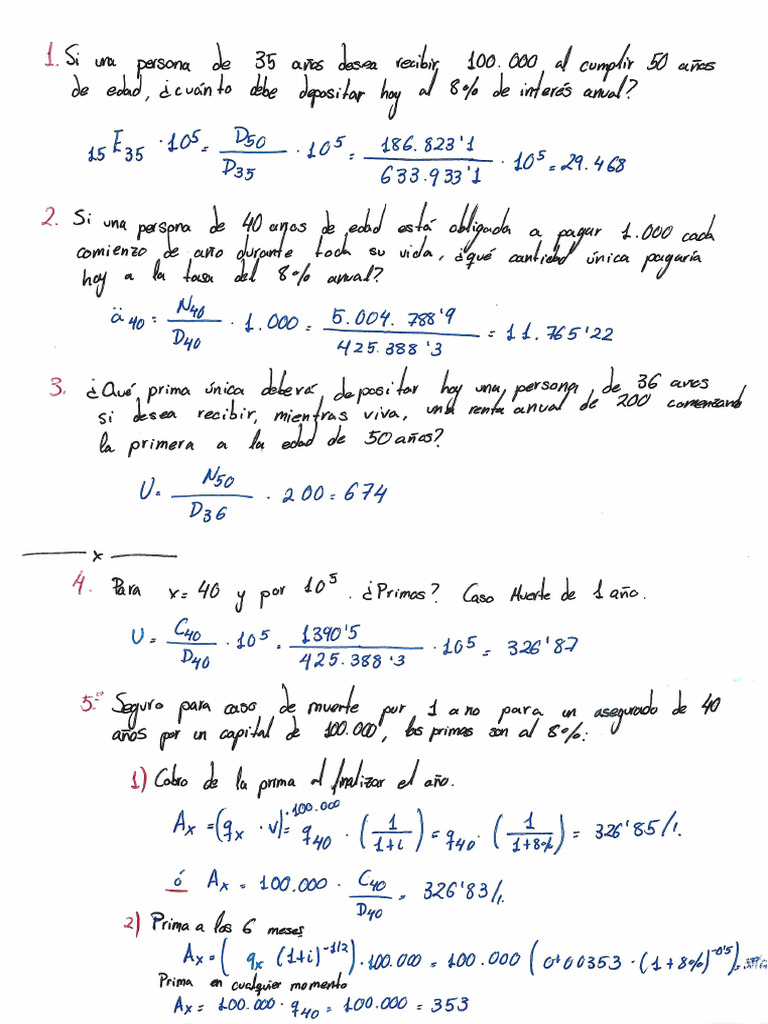 1. Si una persona de 35 años desea recibir 100.000 al cumplir 50 años
de edad, ¿cuánto debe depositar hoy al 8% de interés anual?
₁₅E₃₅ · 10⁵ = D₅₀ / D₃₅ · 10⁵ = 186.823'1 / 633.933'1 · 10⁵ = 29.468
2. Si una persona de 40 años de edad está obligada a pagar 1.000 cada
comienzo de año durante toda su vida, ¿qué cantidad única pagaría
hoy a la tasa del 8% anual?
ä₄₀ = N₄₀ / D₄₀ · 1.000 = 5.004.788'9 / 425.388'3 = 11.765'22
3. ¿Qué prima única deberá depositar hoy una persona de 36 años
si desea recibir, mientras viva, una renta anual de 200 comenzando
la primera a la edad de 50 años?
U = N₅₀ / D₃₆ · 200 = 674
x
4. Para x = 40 y por 10⁵. ¿Primas? Caso Muerte de 1 año.
U = C₄₀ / D₄₀ · 10⁵ = 1390'5 / 425.388'3 · 10⁵ = 326'87
5.º Seguro para caso de muerte por 1 ano para un asegurado de 40
años por un capital de 100.000, las primas son al 8%:
1) Cobro de la prima al finalizar el año.
Aₓ = (qₓ · v) · 100.000 = q₄₀ · (1 / 1+i) = q₄₀ · (1 / 1+8%) = 326'85/1.
ó Aₓ = 100.000 · C₄₀ / D₄₀ = 326'83/1.
2) Prima a los 6 meses
Aₓ = (qₓ (1+i)^-1/2) · 100.000 = 100.000 (0'00353 · (1+8%)^-0'5) =
Prima en cualquier momento
Aₓ = 100.000 · q₄₀ = 100.000 = 353